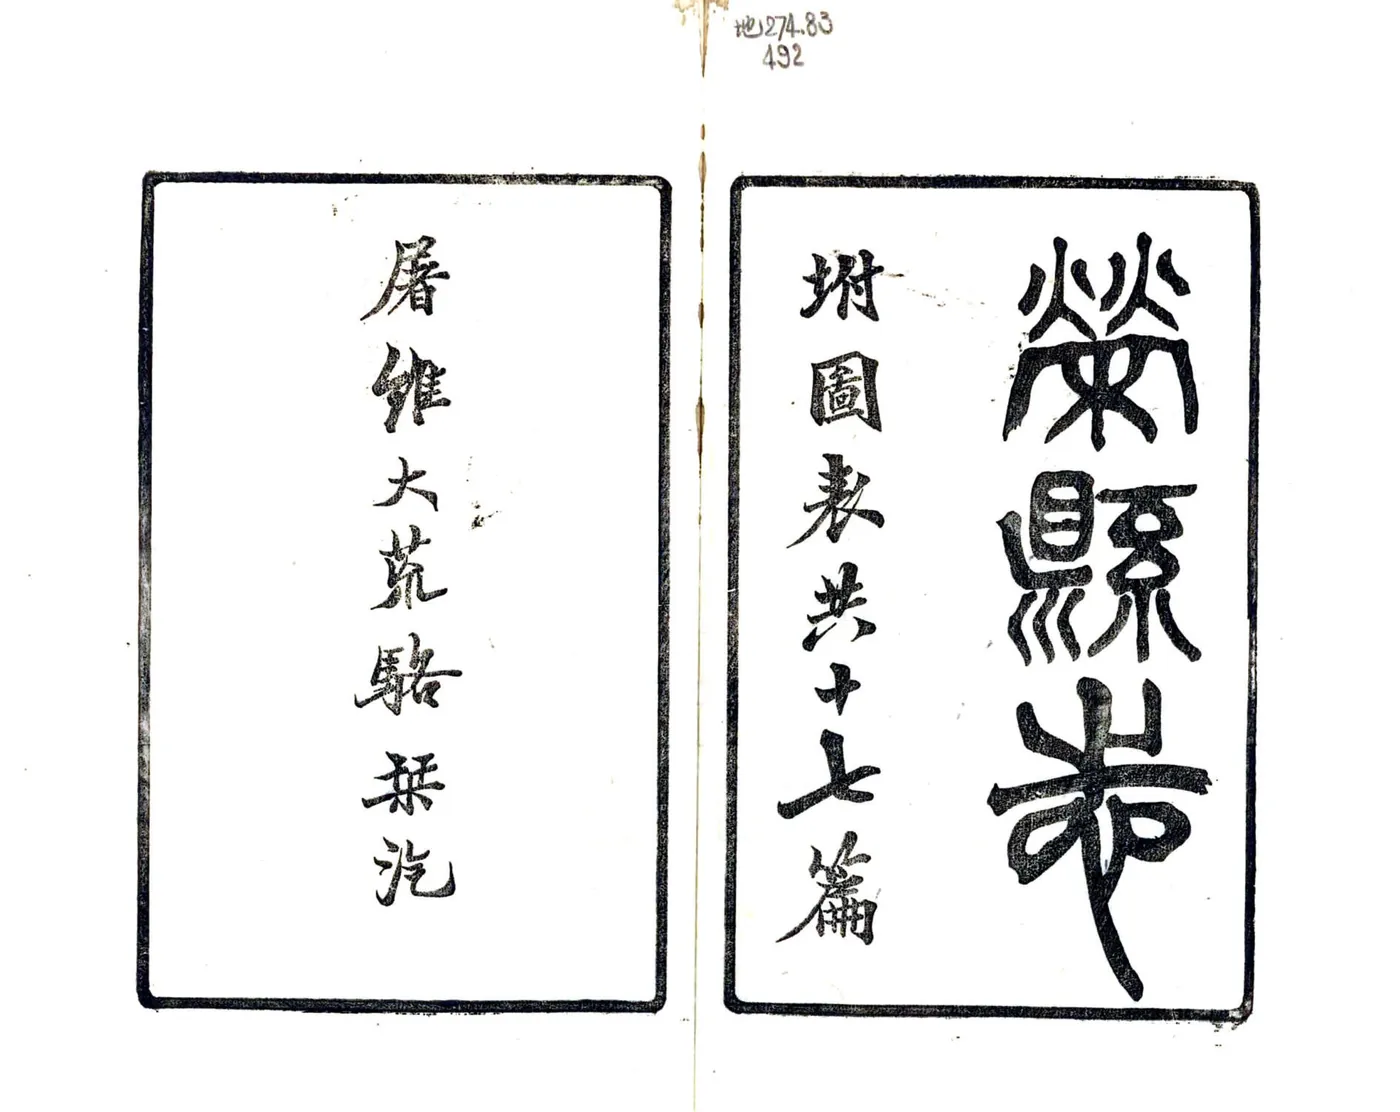 地274.83
492
榮縣志
坿圖表共十七篇
屠維大荒駱栞汔